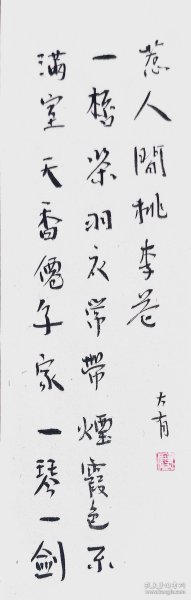 滿室天香僊子家一琴一劍
一桮茶羽衣常帶煙霞色不
惹人間桃李花
大有